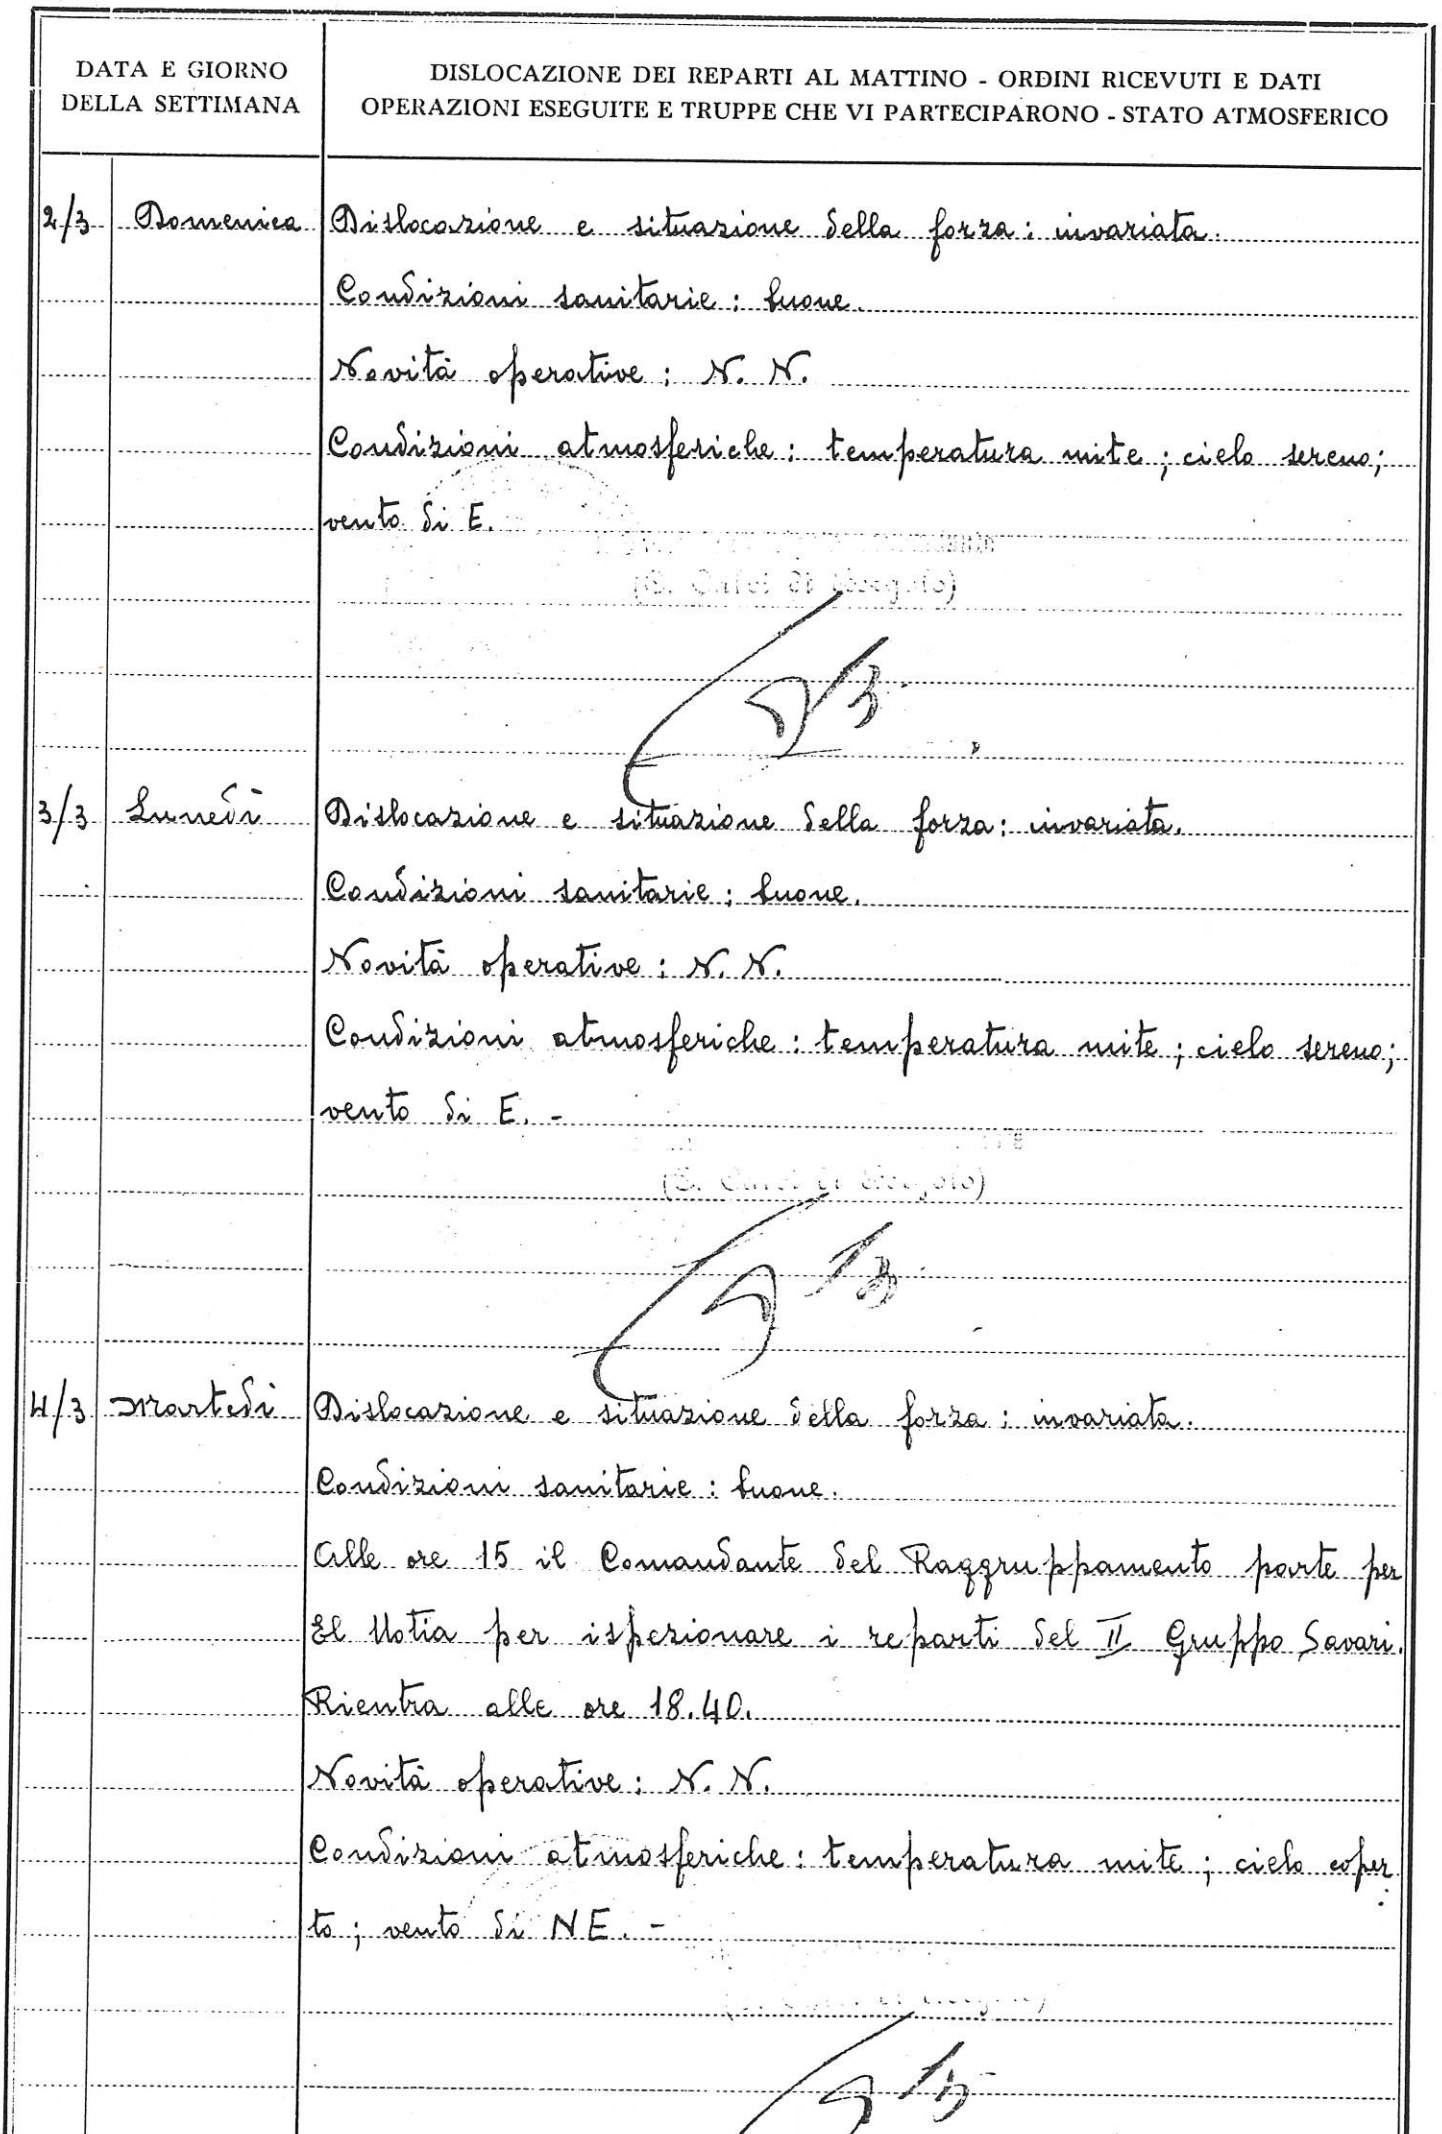 DATA E GIORNO
DELLA SETTIMANA
DISLOCAZIONE DEI REPARTI AL MATTINO - ORDINI RICEVUTI E DATI
OPERAZIONI ESEGUITE E TRUPPE CHE VI PARTECIPARONO - STATO ATMOSFERICO
2/3 Domenica Dislocazione e situazione della forza: invariata.
Condizioni sanitarie: buone.
Novità operative: N. N.
Condizioni atmosferiche: temperatura mite; cielo sereno;
vento di E.
3/3 Lunedì Dislocazione e situazione della forza: invariata.
Condizioni sanitarie: buone.
Novità operative: N. N.
Condizioni atmosferiche: temperatura mite; cielo sereno;
vento di E. -
4/3 Martedì Dislocazione e situazione della forza: invariata.
Condizioni sanitarie: buone.
Alle ore 15 il Comandante del Raggruppamento parte per
El Uotia per ispezionare i reparti del II Gruppo Savari.
Rientra alle ore 18.40.
Novità operative: N. N.
Condizioni atmosferiche: temperatura mite; cielo coper
to; vento di NE. -